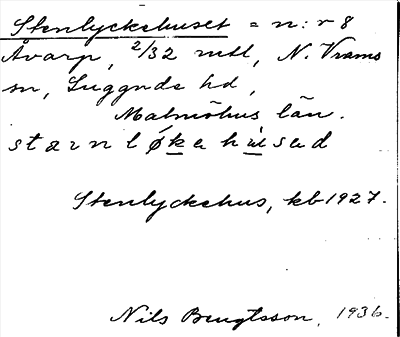 Stenlyckehuset = n:r 8
Åvarp, 2/32 mtl, N. Vrams
sn, Luggude hd,
Malmöhus län.
stænløkahused
Stenlyckehus, kb 1927.
Nils Bengtsson, 1936.